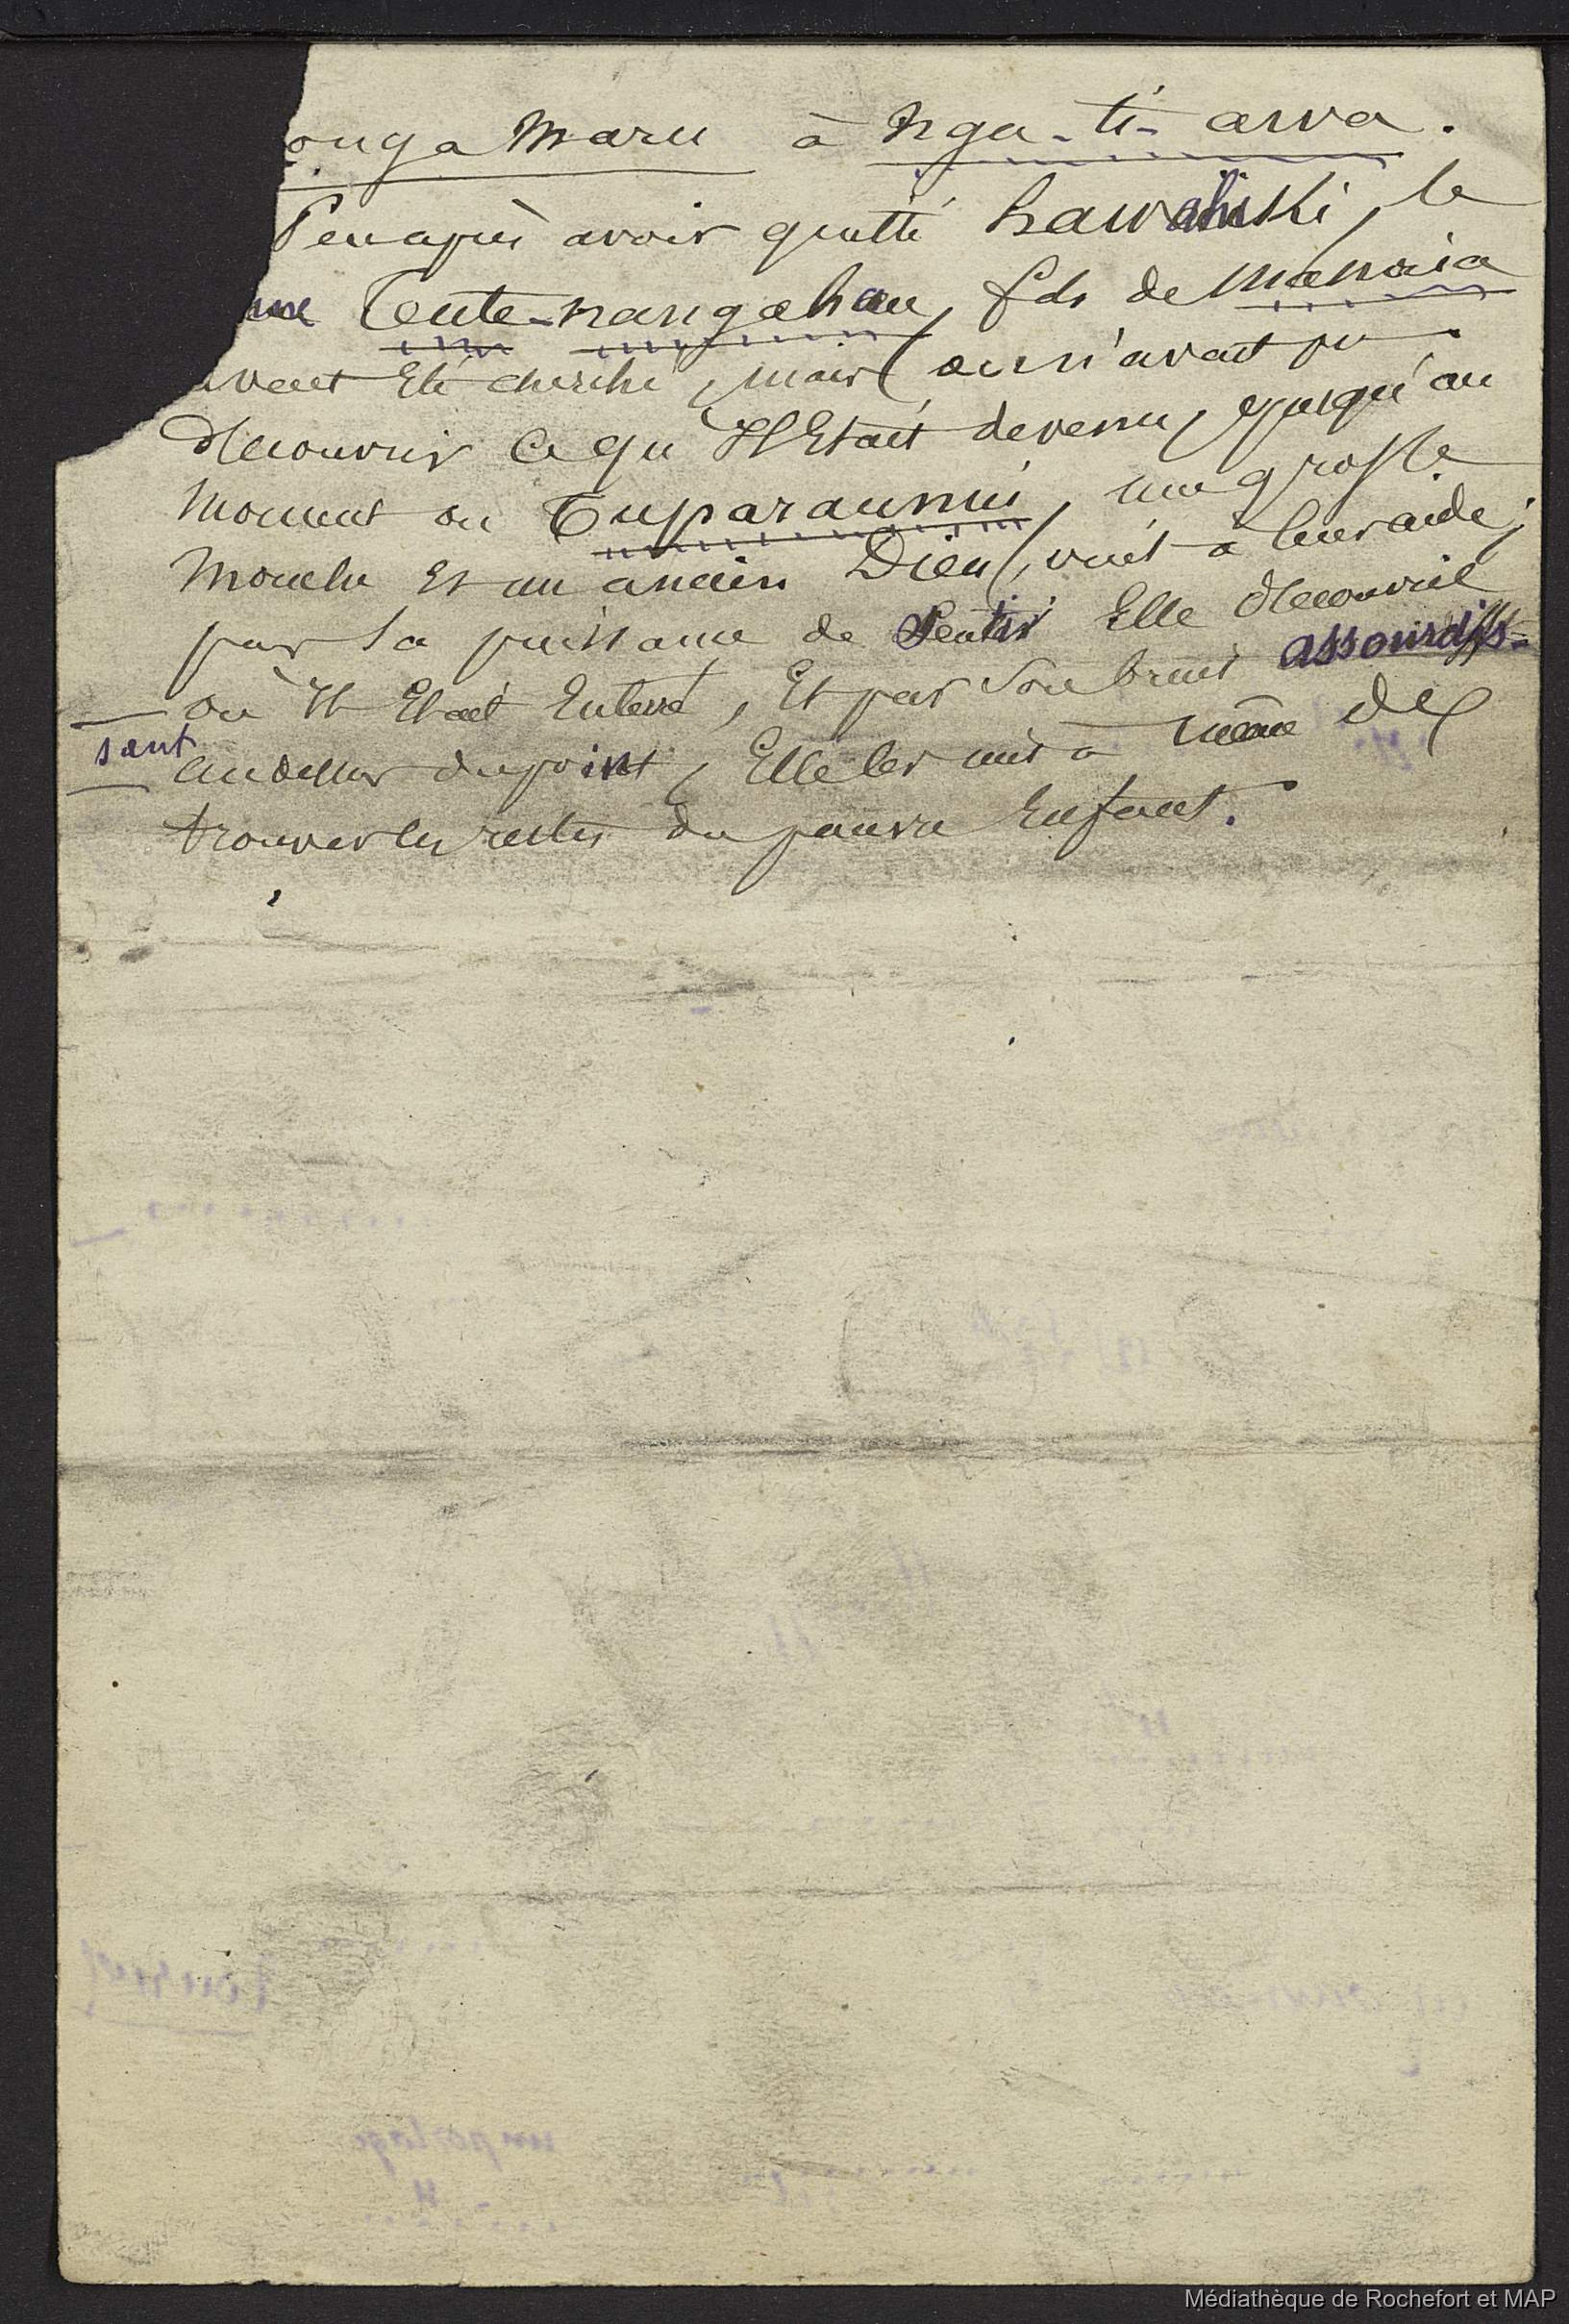 onga Maru à Nga-ti-arva.
Peu après avoir quitté hawahiki, le
Teute-nangahau, fils de Manaia
avait Eté cherché, mais on n'avait pu
découvrir ce qu'Il Etait devenu, jusqu'au
moment ou Tuparaunui, une grosse
Mouche Et un ancien Dieu, vint à leur aide;
par sa puissance de Sentir Elle découvrit
où Il Etait Enterré, Et par son bruit assourdis-
sant
au dessus du point, Elle les mit à même de
trouver les restes du pauvre Enfant.
Médiathèque de Rochefort et MAP